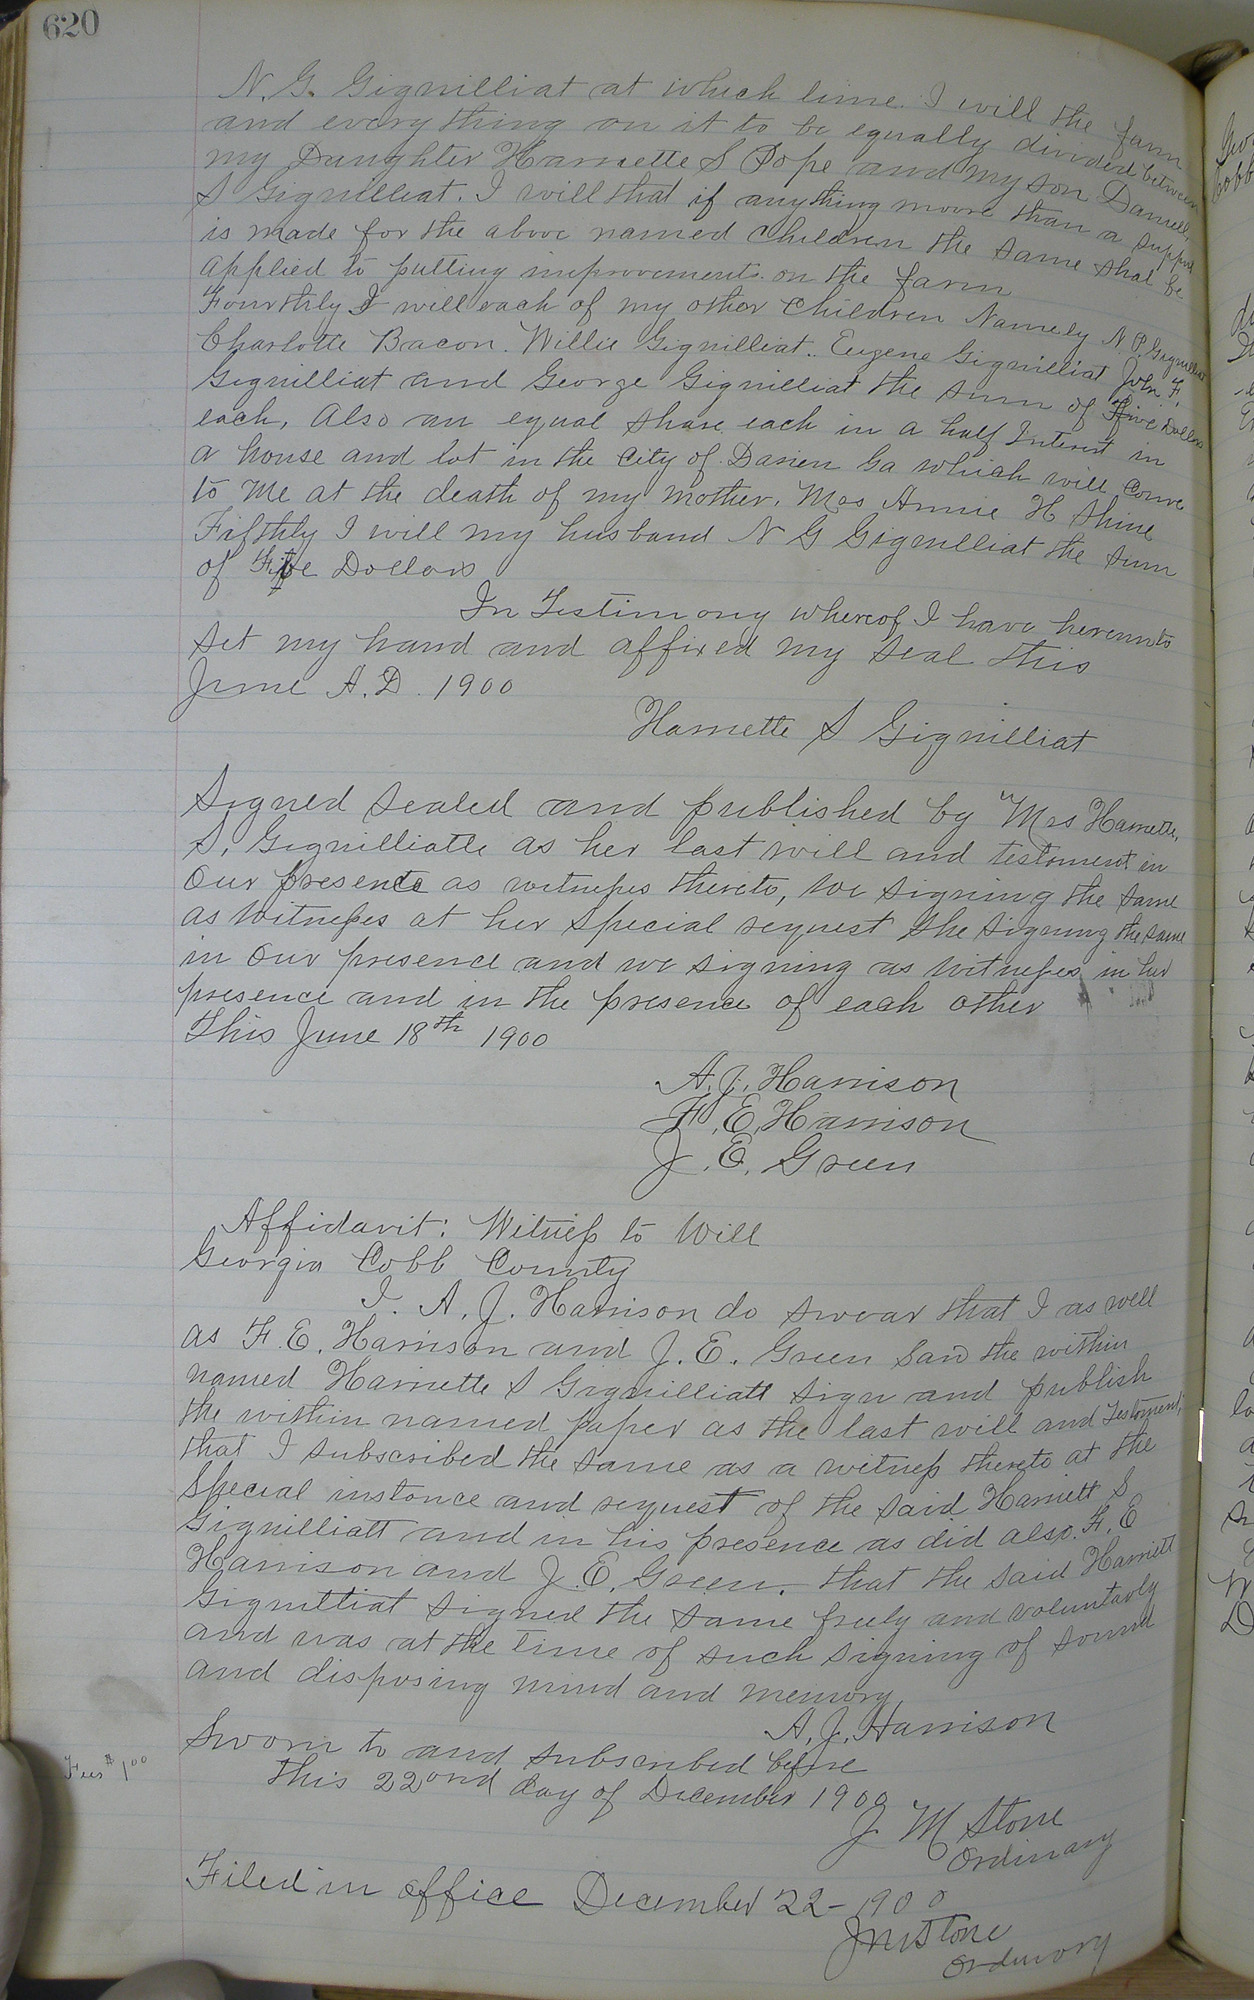 620
N. G. Gignilliat at which time I will the farm
and everything on it to be equally divided between
my Daughter Harriette S Pope and my son Daniell
S Gignilliat. I will that if anything more than a support
is made for the above named children the same shal be
applied to putting improvements on the farm
Fourthly I will each of my other children Namely N. P. Gignilliat
Charlotte Bacon. Willie Gignilliat. Eugene Gignilliat John F.
Gignilliat and George Gignilliat the sum of Five Dollars
each, Also an equal share each in a half Interest in
a house and lot in the City of Darien Ga which will come
to Me at the death of my mother, Mrs Annie H Shine
Fifthly I will my husband N G Gignilliat the sum
of Five Dollars
In Testimony whereof I have hereunto
set my hand and affixed my seal this
June A.D. 1900
Harriette S Gignilliat
Signed sealed and published by Mrs Harriette,
S. Gignilliatte as her last will and testoment in
our presente as witness thereto, we signing the same
as witnesses at her special request she signing the same
in our presence and we signing as witnesses in her
presence and in the presence of each other
This June 18th 1900
A. J. Harrison
F. E. Harrison
J. E. Green
Affidavit: Witness to Will
Georgia Cobb County
I. A. J. Harrison do swear that I as well
as F. E. Harrison and J. E. Green saw the within
named Harriette S Gignilliatt sign and publish
the within named paper as the last will and Testoment,
that I subscribed the same as a witness thereto at the
special instance and request of the said Harriett S
Gignilliatt and in his presence as did also. F. E
Harrison and J. E. Green. that the said Harriett
Gignilliat signed the same freely and voluntarly
and was at the time of such signing of sound
and disposing mind and memory
A. J. Harrison
Sworn to and subscribed before
this 22ond day of December 1900
J M Stone
Ordinary
Fees $1.00
Filed in office December 22 - 1900
JM Stone
Ordinary